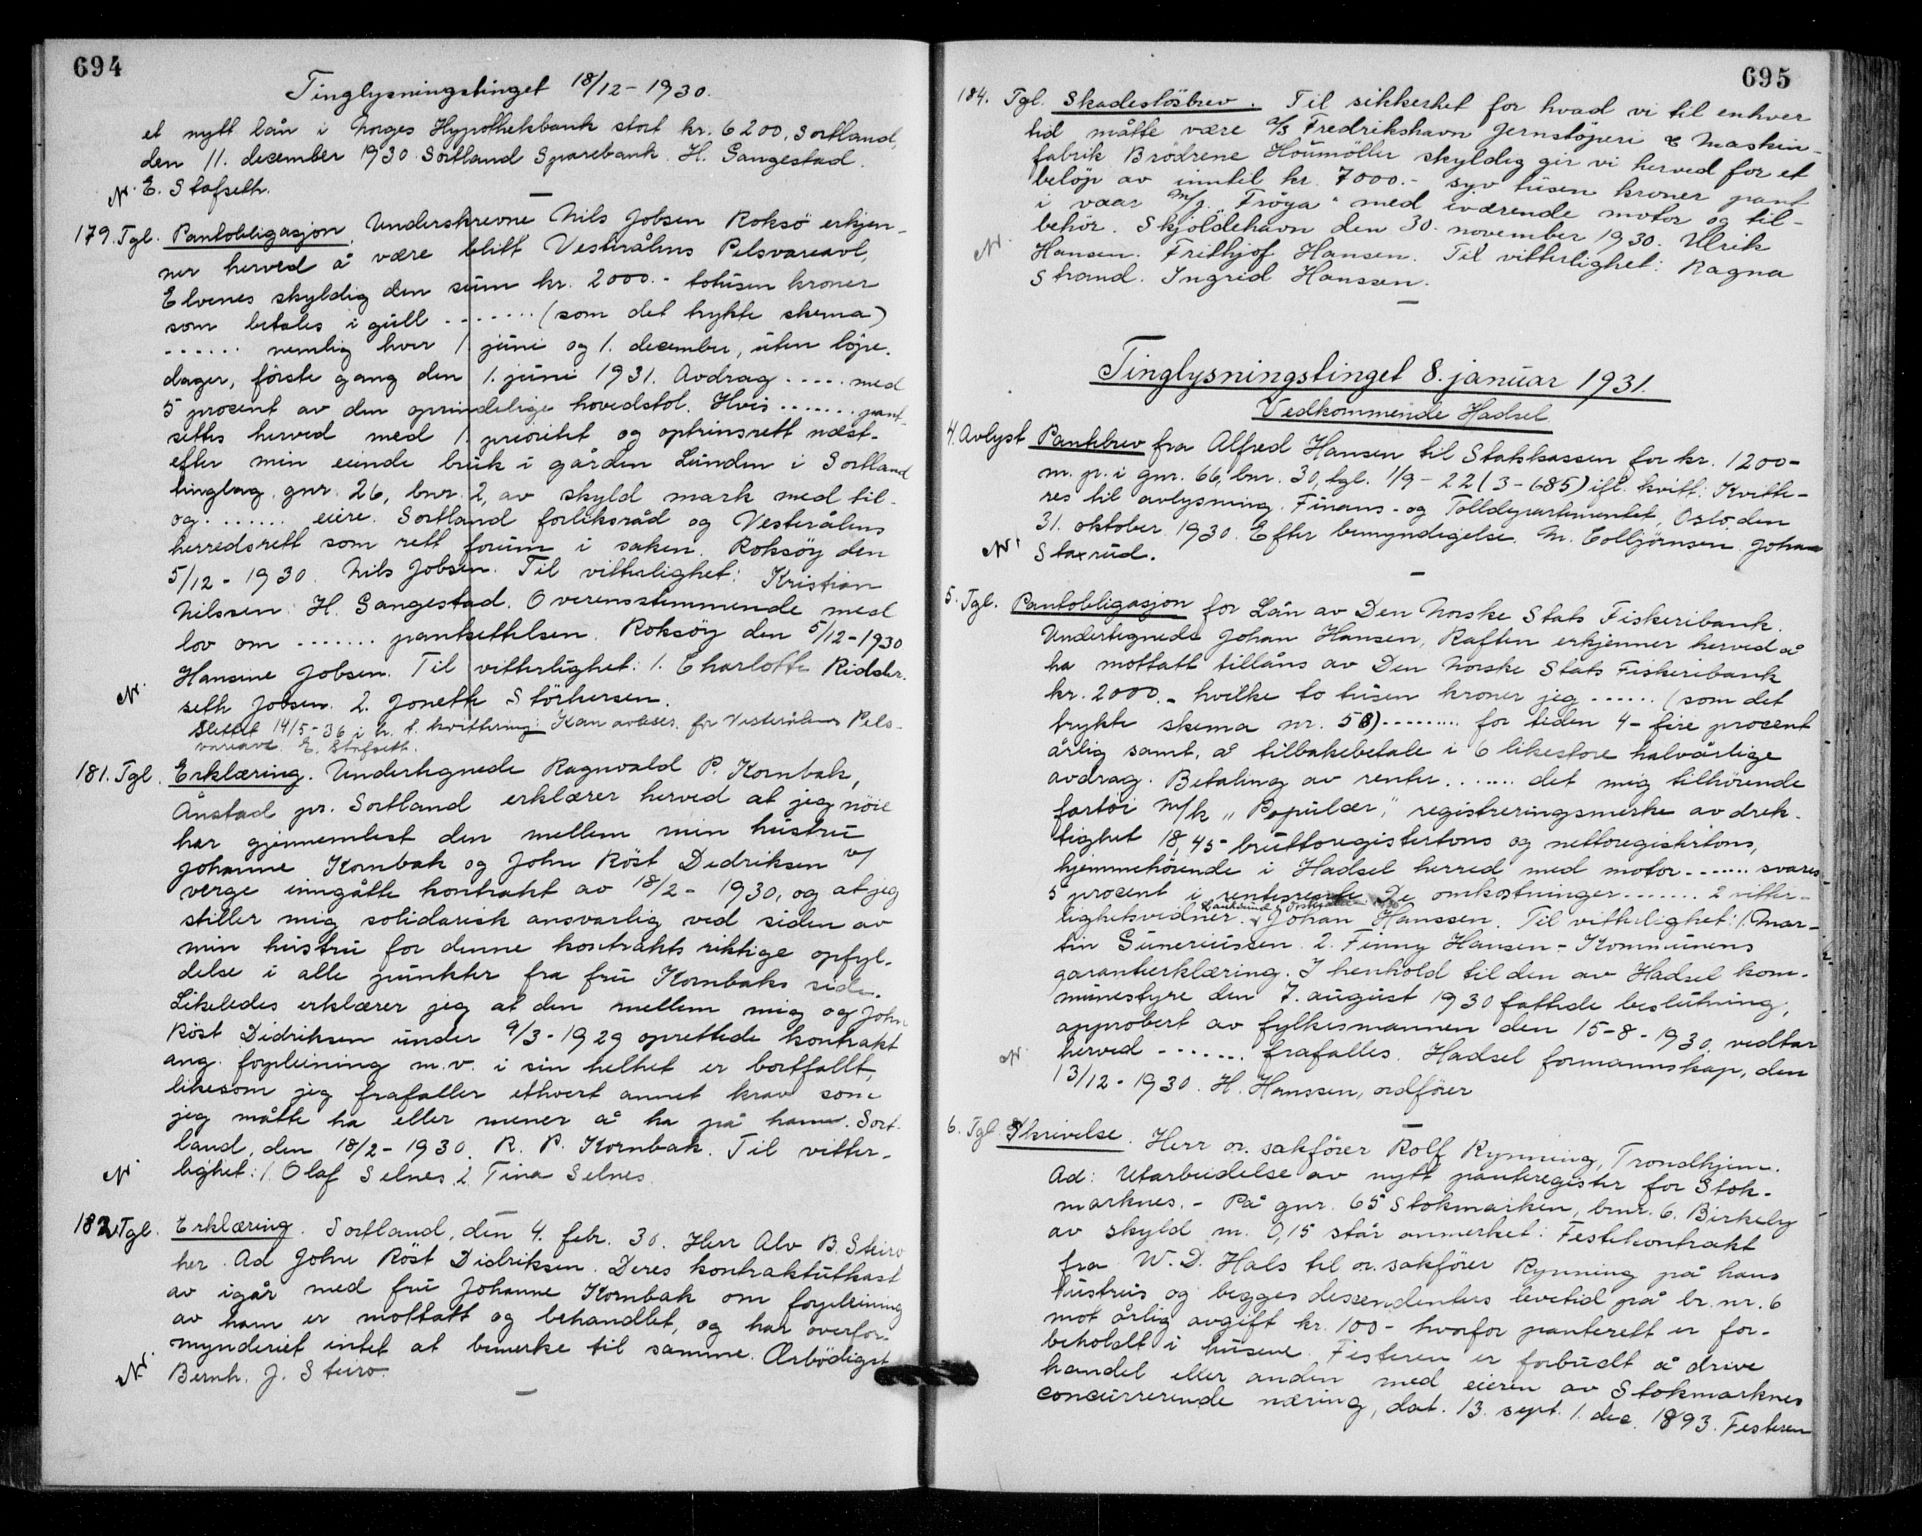 694
Tinglysningstinget 18/12-1930.
et nytt lån i Norges Hypothekbank stort kr. 6200. Sortland,
den 11. december 1930. Sortland Sparebank. H. Gangestad.
N. E. Stafseth.
179. Tgl. Pantobligasjon. Underskrevne Nils Jobsen Roksö erkjen-
ner herved å være blitt Vesterålens Pelsvareavl,
Elvenes skyldig den sum kr. 2000.- totusen kroner
som betales i gull ....... (som det trykte skema)
...... nemlig hver 1. juni og 1. december, uten löpe-
dager, förste gang den 1. juni 1931. Avdrag ..... med
5 procent av den oprindelige hovedstol. Hvis ....... pant-
settes herved med 1. prioritet og optrinsrett næst-
efter min eiende bruk i gården Lunden i Sortland
tinglag gnr. 26, bnr. 2, av skyld mark med til-
og ....... eiere. Sortland forliksråd og Vesterålens
herredsrett som rett forum i saken. Roksöy den
5/12-1930. Nils Jobsen. Til vitterlighet: Kristian
Nilssen. H. Gangestad. Overensstemmende med
lov om ....... pantsettelsen. Roksöy den 5/12-1930
Hansine Jobsen. Til vitterlighet: 1. Charlotte Ridder-
N. seth Jobsen. 2. Joneth Störkersen.
Slettet 14/5-36 i h. t. kvittering: Kan avlæses. for Vesterålens Pels-
vareavl. E. Stafseth.
181. Tgl. Erklæring. Undertegnede Ragnvald P. Kornbak,
Ånstad pr. Sortland erklærer herved at jeg nöie
har gjennemlest den mellem min hustru
Johanne Kornbak og John Röst Dedriksen v/
verge inngåtte kontrakt av 18/2-1930, og at jeg
stiller mig solidarisk ansvarlig ved siden av
min hustru for denne kontrakts riktige opfyl-
delse i alle punkter fra fru Kornbaks side.
Likeledes erklærer jeg at den mellem mig og John
Röst Didriksen under 9/3-1929 oprettede kontrakt
ang. forpleining m.v. i sin helhet er bortfallt,
likesom jeg frafaller ethvert annet krav som
jeg måtte ha eller mener å ha på ham. Sort-
land, den 18/2-1930. R. P. Kornbak. Til vitter-
N. lighet: 1. Olaf Selnes. 2. Tina Selnes.
182. Tgl. Erklæring. Sortland, den 4. febr. 30. Herr Alv B. Steiro
her. Ad John Röst Didriksen. Deres kontraktutkast
av igår med fru Johanne Kornbak om forpleining
av ham er mottatt og behandlet, og har overfor-
mynderiet intet at bemerke til samme. Ærbödigst
N. Bernh. J. Steiro.
695
184. Tgl. Skadeslösbrev. Til sikkerhet for hvad vi til enhver
tid måtte være A/S Fredrikshavn Jernstöperi & Maskin-
fabrik Brödrene Houmöller skyldig gir vi herved for et
belöp av inntil kr. 7000.- syv tusen kroner pant
i vaar M/J. "Fröya" med iværende motor og til-
behör. Skjöldehavn den 30. november 1930. Ulrik
N. Hansen. Frithjof Hansen. Til vitterlighet: Ragna
Strand. Ingrid Hanssen.
Tinglysningstinget 8. januar 1931.
Vedkommende Hadsel
4. Avlyst Pantebrev fra Alfred Hansen til Statskassen for kr. 1200-
m. pr. i gnr. 66, bnr. 30, tgl. 1/9-22 (3-685) ifl. kvitt: Kvitte-
res til avlysning. Finans- og Tolldepartmentet, Oslo, den
31. oktober 1930. Efter bemyndigelse M. Colbjörnsen. Johan
N. Staxrud.
5. Tgl. Pantobligasjon for Lån av Den Norske Stats Fiskeribank.
Undertegnede Johan Hansen, Raften erkjenner herved å
ha mottatt tillåns av Den Norske Stats Fiskeribank
kr. 2000.- hvilke to tusen kroner jeg ...... (som det
trykte skema nr. 5B) ......... for tiden 4- fire procent
årlig samt, å tilbakebetale i 6 likestore halvårlige
avdrag. Betaling av renter ....... det mig tilhörende
fartöi m/k "Populær," registreringsmerke av drek-
tighet 18,45 bruttoregistertons og nettoregistertons,
hjemmehörende i Hadsel herred med motor ....... svares
5 procent i rentesrente. De omkostninger ....... 2 vitter-
lighetsvidner. Johan Hanssen. Til vitterlighet: 1. Mar-
tin Guneriussen. 2. Finny Hansen - Kommunens
garantierklæring. I henhold til den av Hadsel kom-
munestyre den 7. august 1930 fattede beslutning,
approbert av fylkesmannen den 15-8-1930, vedtar
N. herved ....... frafalles. Hadsel formannskap, den
13/12-1930. H. Hanssen, ordförer
6. Tgl. Skrivelse. Herr or. sakförer Rolf Rynning, Trondhjem.
Ad: Utarbeidelse av nytt panteregister for Stok-
marknes. - På gnr. 65 Stokmarken, bnr. 6. Birkeby
av skyld m. 0,15 står anmerket: Festekontrakt
fra W. D. Hals til or. sakförer Rynning på hans
hustrus og begges descendenters levetid på br. nr. 6
mot årlig avgift kr. 100- hvorfor panterett er for-
beholdt i husene. Festeren er forbudt å drive
handel eller anden med eieren av Stokmarknes
concurrerende næring, dat. 13. sept. 1. dec. 1893. Festeren